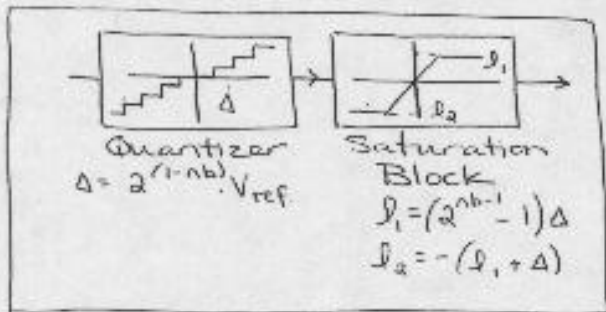 Δ
l₁
l₂
Quantizer
Δ = 2^(1-nb) · Vref
Saturation
Block
l₁ = (2^(nb-1) - 1)Δ
l₂ = -(l₁ + Δ)